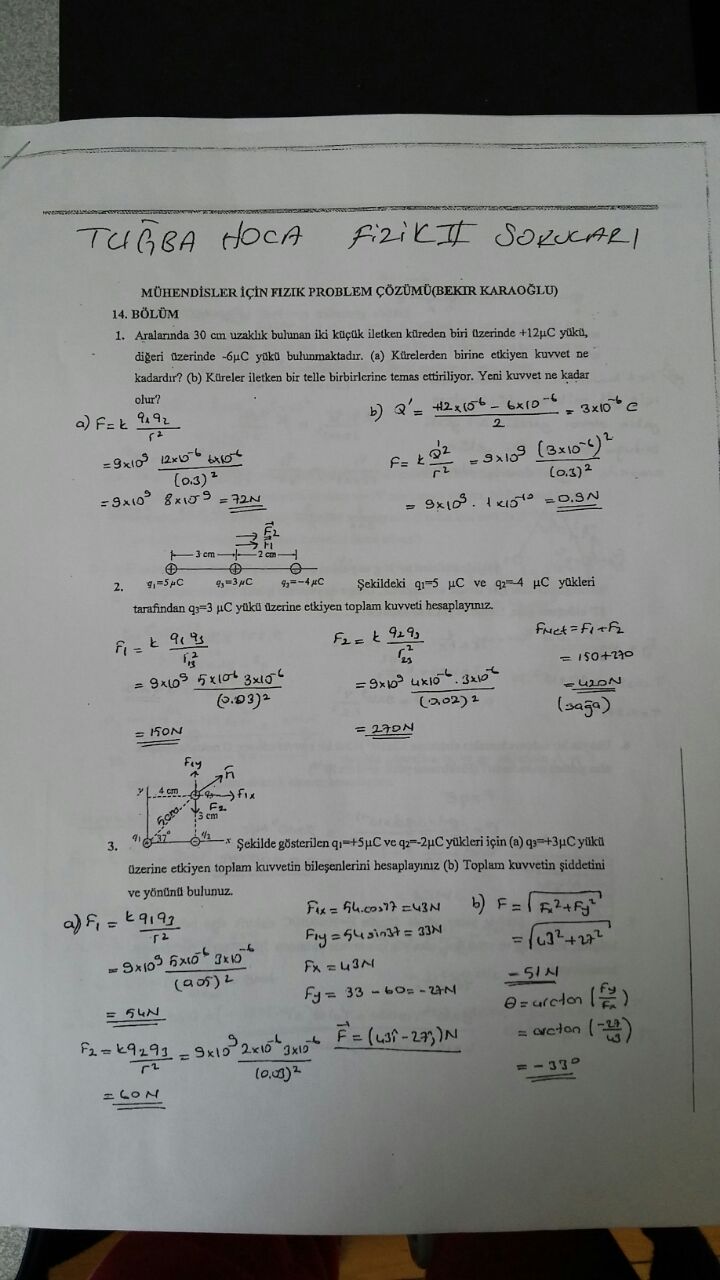 TUĞBA HOCA FİZİK II SORULARI
MÜHENDİSLER İÇİN FIZIK PROBLEM ÇÖZÜMÜ(BEKIR KARAOĞLU)
14. BÖLÜM
1. Aralarında 30 cm uzaklık bulunan iki küçük iletken küreden biri üzerinde +12µC yükü,
diğeri üzerinde -6µC yükü bulunmaktadır. (a) Kürelerden birine etkiyen kuvvet ne
kadardır? (b) Küreler iletken bir telle birbirlerine temas ettiriliyor. Yeni kuvvet ne kadar
olur?
a) F = k q1q2 / r²
= 9x10⁹ 12x10⁻⁶ 6x10⁻⁶ / (0.3)²
= 9x10⁹ 8x10⁻⁹ = 72N
b) Q' = +12x10⁻⁶ - 6x10⁻⁶ / 2 = 3x10⁻⁶ C
F = k Q'² / r² = 9x10⁹ (3x10⁻⁶)² / (0.3)²
= 9x10⁹ . 1x10⁻¹⁰ = 0.9N
F2
F1
3 cm 2 cm
q1=5µC q3=3µC q2=-4µC
2. Şekildeki q1=5 µC ve q2=-4 µC yükleri
tarafından q3=3 µC yükü üzerine etkiyen toplam kuvveti hesaplayınız.
F1 = k q1q3 / r13²
= 9x10⁹ 5x10⁻⁶ 3x10⁻⁶ / (0.03)²
= 150N
F2 = k q2q3 / r23²
= 9x10⁹ 4x10⁻⁶ . 3x10⁻⁶ / (0.02)²
= 270N
Fnet = F1 + F2
= 150+270
= 420N
(sağa)
F1y
F1
y 4 cm q3 F1x
F2
5cm 3 cm
q1 37° q2 x
3. Şekilde gösterilen q1=+5µC ve q2=-2µC yükleri için (a) q3=+3µC yükü
üzerine etkiyen toplam kuvvetin bileşenlerini hesaplayınız (b) Toplam kuvvetin şiddetini
ve yönünü bulunuz.
a) F1 = kq1q3 / r²
= 9x10⁹ 5x10⁻⁶ 3x10⁻⁶ / (0.05)²
= 54N
F2 = kq2q3 / r² = 9x10⁹ 2x10⁻⁶ 3x10⁻⁶ / (0.03)²
= 60N
F1x = 54.cos37 = 43N
F1y = 54 sin37 = 33N
Fx = 43N
Fy = 33 - 60 = -27N
F = (43i - 27j)N
b) F = √Fx²+Fy²
= √43²+27²
= 51N
θ = arctan (Fy/Fx)
= arctan (-27/43)
= -33°